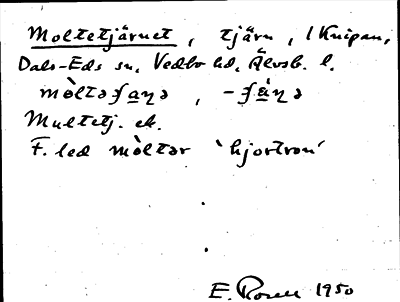 Moltetjärnet, tjärn, i Knipan,
Dals-Eds sn, Vedbo hd, Älvsb. l.
Multetj. ek.
F. led mòltər 'hjortron'
E. Rosell 1950